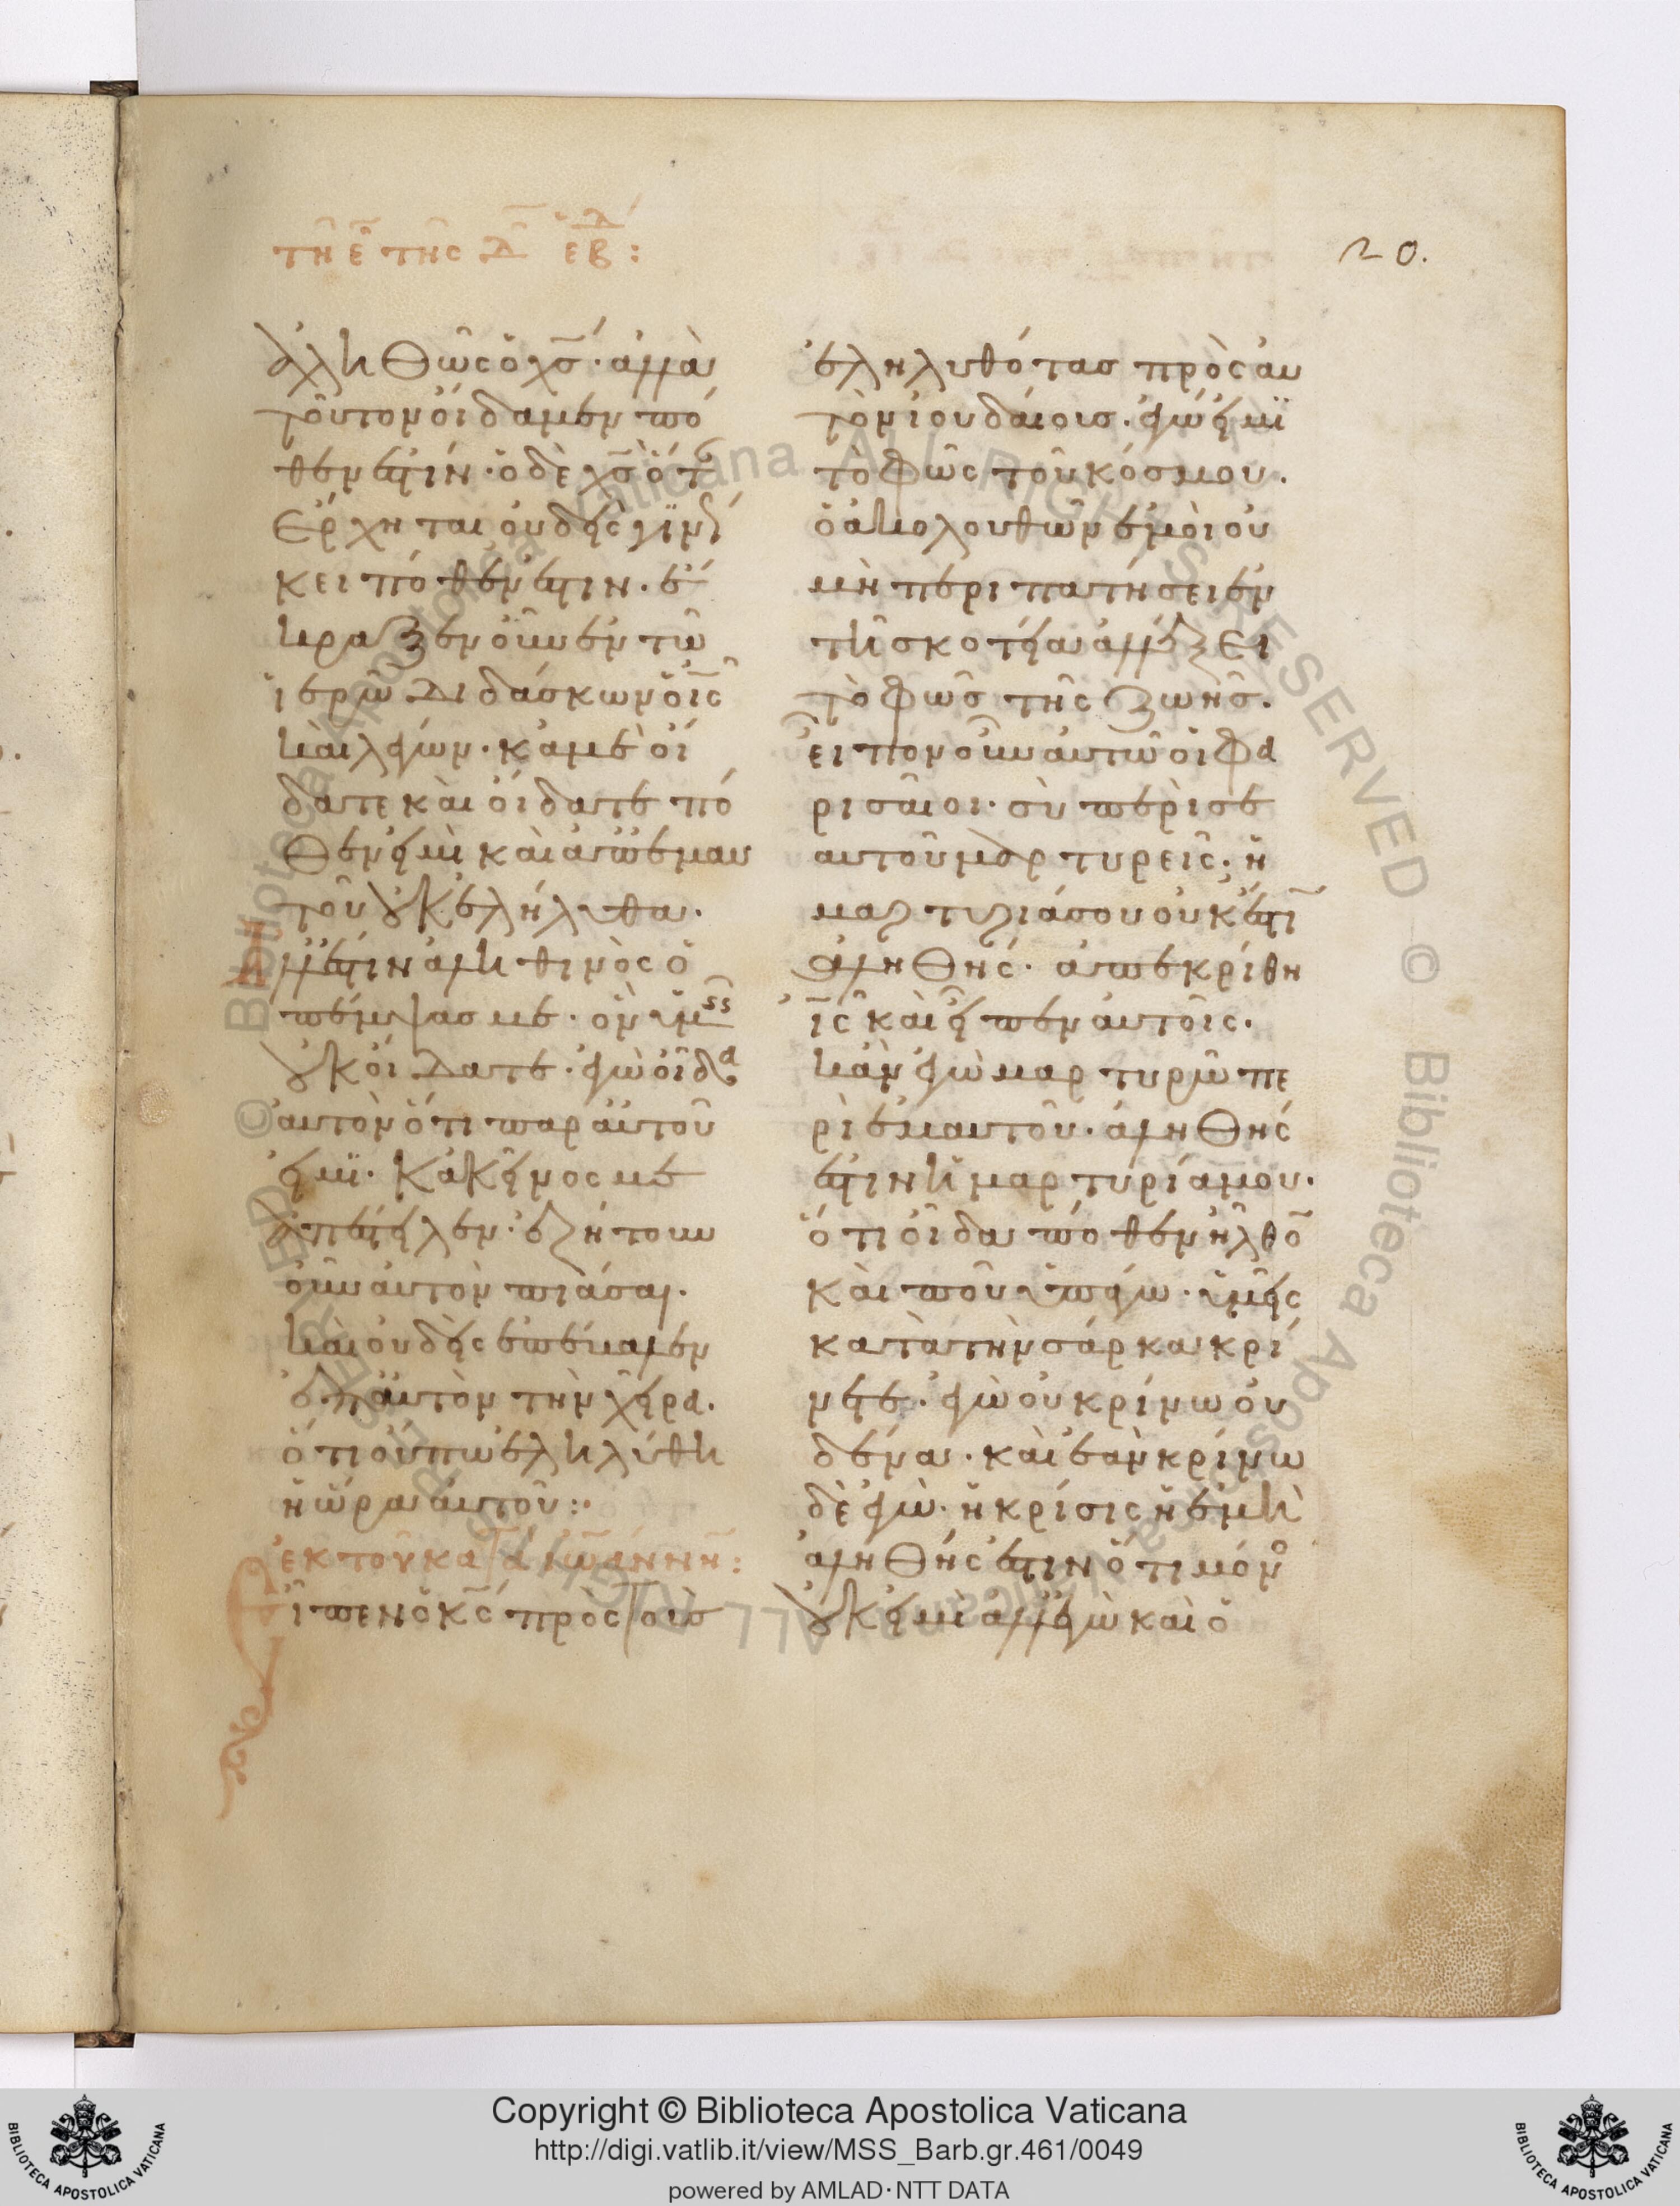 τῆ ε̄ τῆς Δ̄ ἑβδ:
20.
ἀληθῶς ὁ χς̄. ἀλλὰ
τοῦτον οἴδαμεν πό
θεν ἐστίν. ὁ δὲ χς̄ ὅτ
ἔρχηται οὐδεὶς γινώ
κει πόθεν ἐστιν. ἔ
κραζεν οὖν ἐν τῶ
ἱερῶ διδάσκων ὁ ις̄
καὶ λέγων. κἀμὲ οἴ
δατε καὶ οἴδατε πό
θεν εἰμὶ καὶ ἀπ' ἐμαυ
τοῦ οὐκ ἐλήλυθα.
ἀλλ' ἔστιν ἀληθινὸς ὁ
πέμψας με. ὃν ὑμεῖς
οὐκ οἴδατε. ἐγὼ οἶδα
αὐτὸν ὅτι παρ' αὐτοῦ
εἰμϊ. κἀκεῖνος με
ἀπέστειλεν. ἐζήτουν
οὖν αὐτὸν πιάσαι.
καὶ οὐδεὶς ἐπέβαλεν
ἐπ' αὐτὸν τὴν χεῖρα.
ὅτι οὔπω ἐληλύθη
ἡ ὥρα αὐτοῦ:
ἐκ τοῦ κατὰ ἰωάννην:
Εἶπεν ὁ κς̄ πρὸς τοὺς
ἐληλυθότας πρὸς αὐ
τὸν ἰουδαίοις. ἐγώ εἰμϊ
τὸ φῶς τοῦ κόσμου.
ὁ ἀκολουθῶν ἐμοὶ οὐ
μὴ περιπατήσει ἐν
τῆ σκοτεία ἀλλ' ἕξει
τὸ φῶς τῆς ζωῆς.
εἶπον οὖν αὐτῶ οἱ φα
ρισαῖοι. σὺ περὶ σε
αυτοῦ μαρτυρεῖς. ἡ
μαρτυρία σου οὐκ ἔστι
ἀληθής. ἀπεκρίθη
ις̄ καὶ εἶπεν αὐτοῖς.
κἀν ἐγὼ μαρτυρῶ πε
ρὶ ἐμαυτοῦ. ἀληθής
ἐστιν ἡ μαρτυρία μου.
ὅτι οἶδα πόθεν ἦλθο̄
καὶ ποῦ ὑπάγω. ὑμεῖς
κατὰ τὴν σάρκα κρί
νετε. ἐγὼ οὐ κρίνω οὐ
δένα. καὶ ἐὰν κρίνω
δὲ ἐγὼ. ἡ κρίσις ἡ ἐμὴ
ἀληθής ἐστιν ὅτι μόνο
οὐκ εἰμὶ ἀλλ' ἐγὼ καὶ ὁ
Copyright © Biblioteca Apostolica Vaticana
http://digi.vatlib.it/view/MSS_Barb.gr.461/0049
powered by AMLAD·NTT DATA